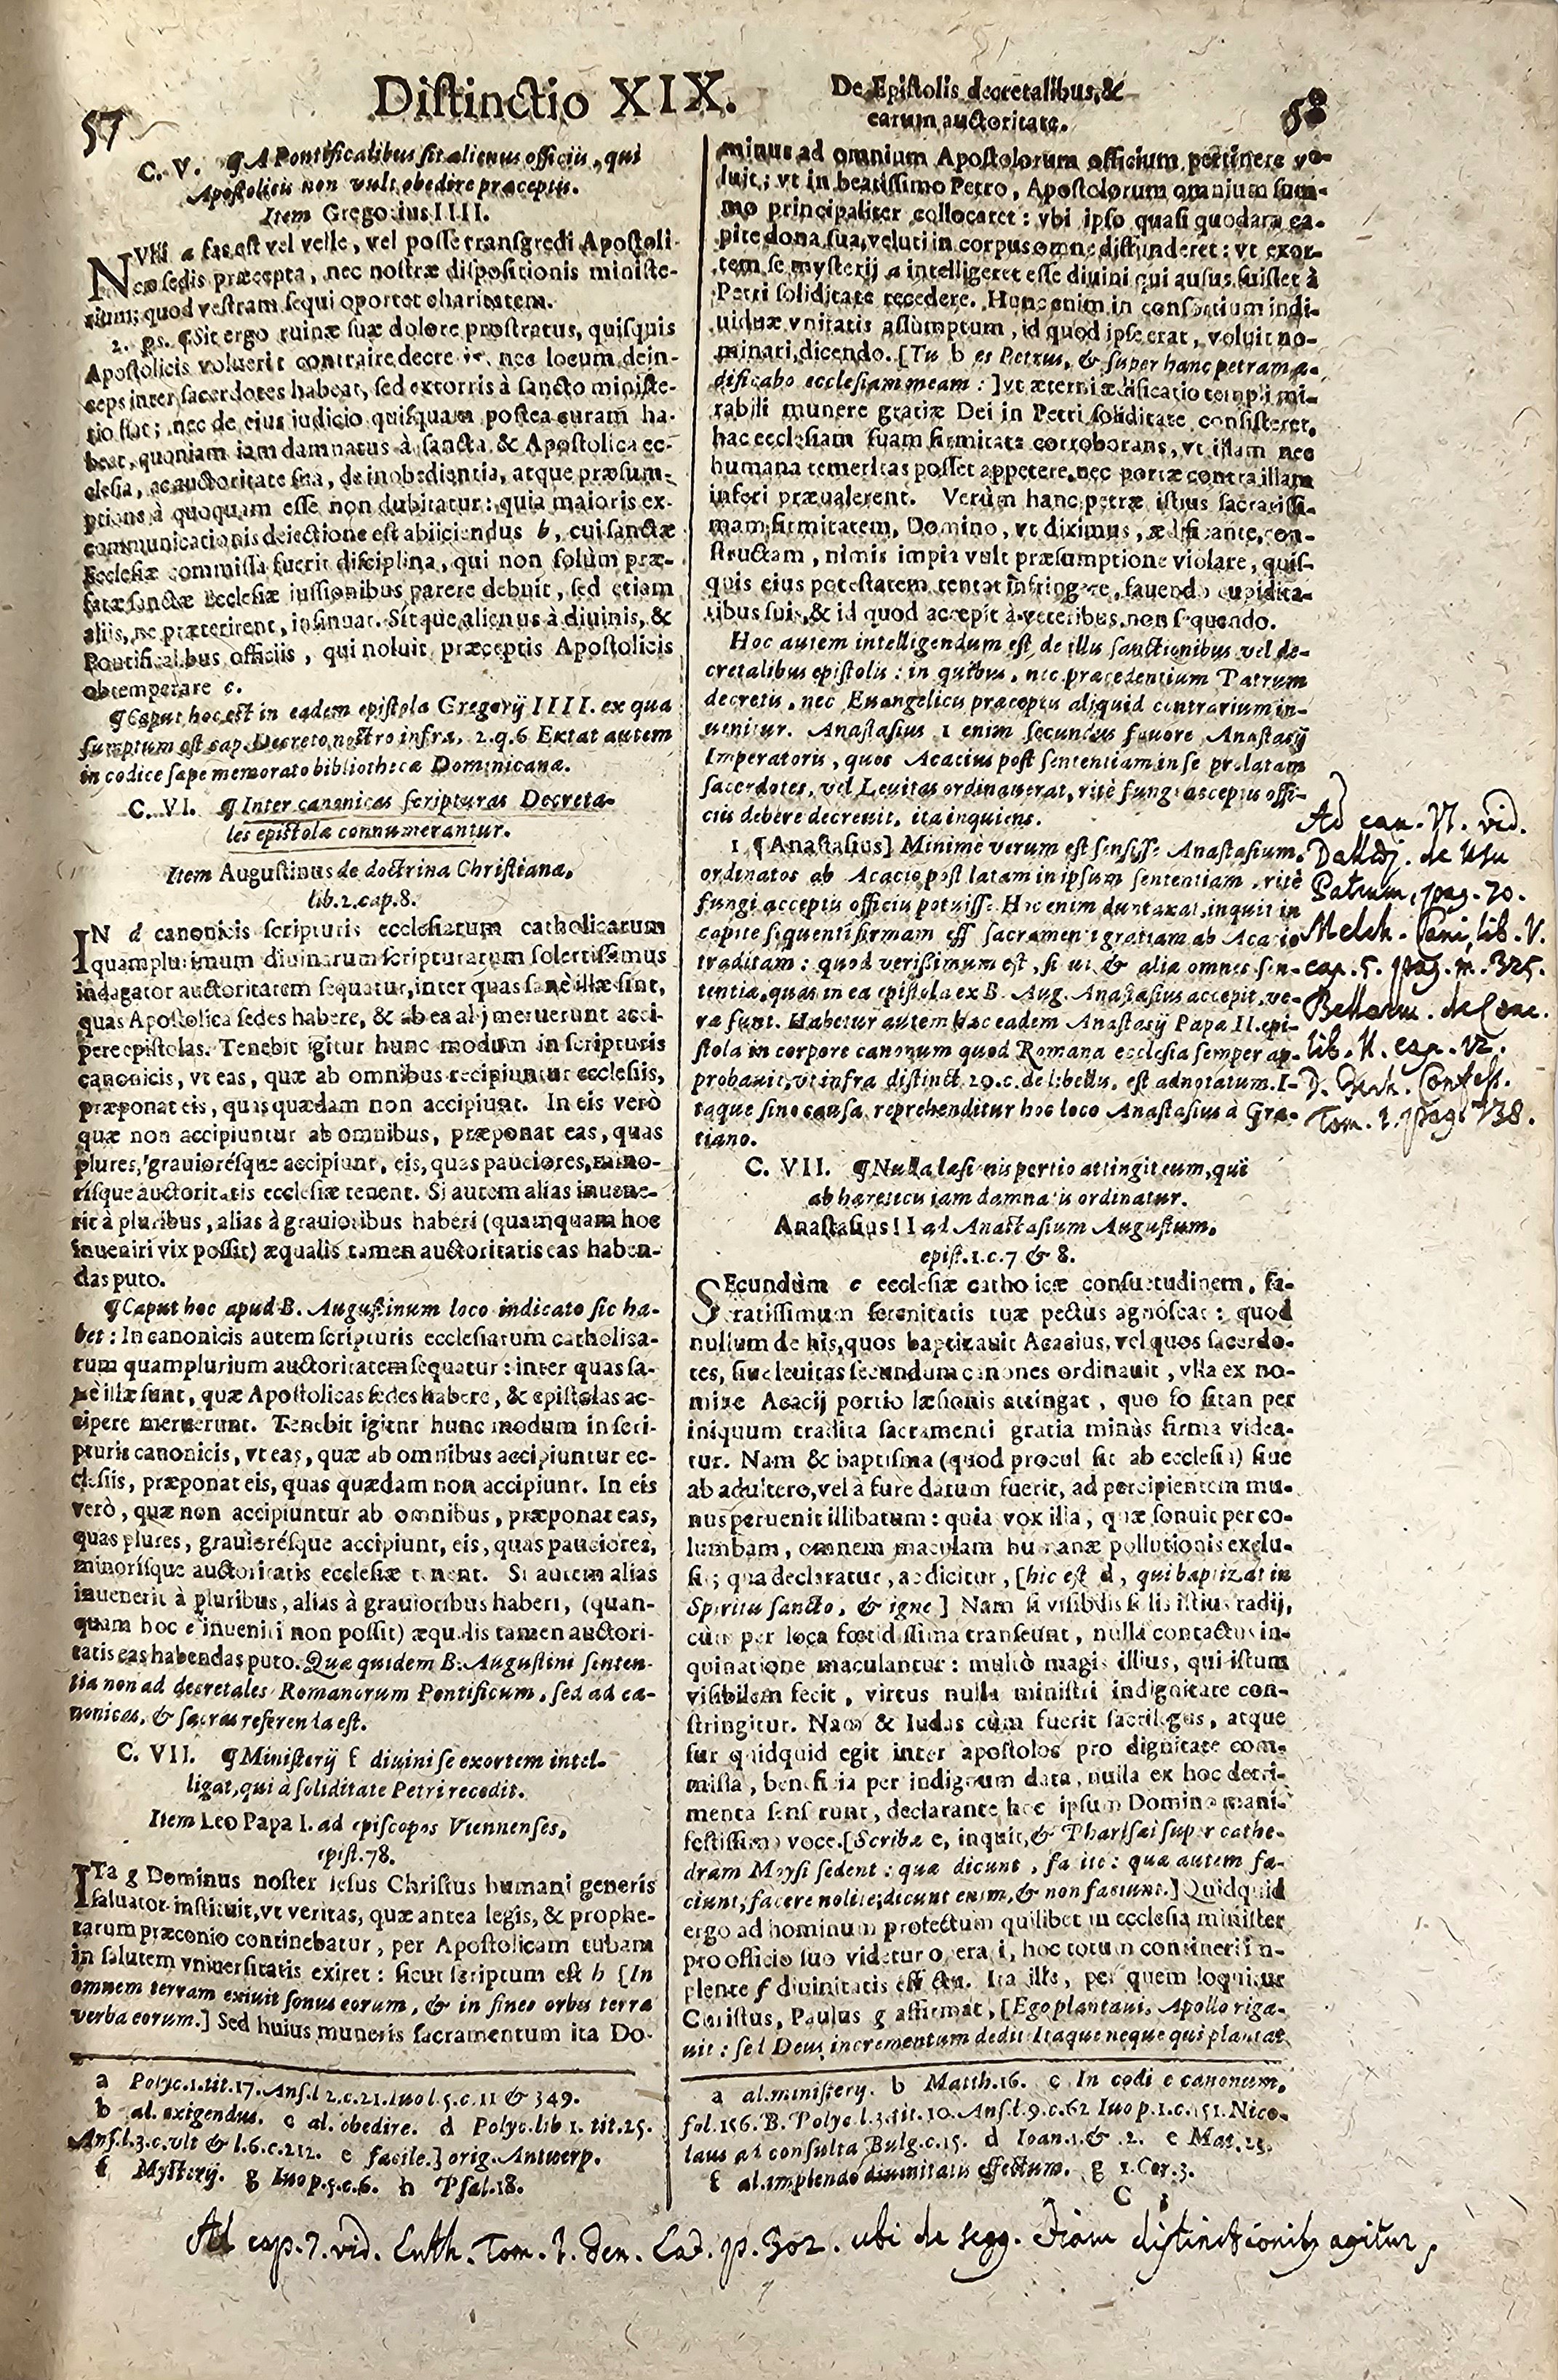 57
Distinctio XIX.
De Epistolis decretalibus, &
earum auctoritate.
58
C. V. ¶ A Pontificalibus sit alienus officiis, qui
Apostolicis non vult obedire præceptis.
Item Gregorius IIII.
NVlli a fas est vel velle, vel posse transgredi Apostoli-
cæ sedis præcepta, nec nostræ dispositionis ministe-
rium; quod vestram sequi oportet charitatem.
2. ps. ¶ Sit ergo ruinæ suæ dolore prostratus, quisquis
Apostolicis voluerit contraire decretis, nec locum dein-
ceps inter sacerdotes habeat, sed extorris à sancto ministe-
rio fiat; nec de eius iudicio quisquam postea curam ha-
beat, quoniam iam damnatus à sancta & Apostolica ec-
clesia, ac auctoritate sua, de inobedientia, atque præsum-
ptione à quoquam esse non dubitatur: quia maioris ex-
communicationis deiectione est abiiciendus b, cui sanctæ
Ecclesiæ commissa fuerit disciplina, qui non solùm præ-
fatæ sanctæ Ecclesiæ iussionibus parere debuit, sed etiam
aliis, ne præterirent, insinuat. Sitque alienus à diuinis, &
Pontificalibus officiis, qui noluit præceptis Apostolicis
obtemperare c.
¶ Caput hoc est in eadem epistola Gregorij IIII. ex qua
sumptum est cap. Decreto nostro infra. 2.q.6 Extat autem
in codice sæpe memorato bibliothecæ Dominicanæ.
C. VI. ¶ Inter canonicas scripturas Decreta-
les epistolæ connumerantur.
Item Augustinus de doctrina Christiana,
lib.2.cap.8.
IN d canonicis scripturis ecclesiarum catholicarum
quamplurimum diuinarum scripturarum solertissimus
indagator auctoritatem sequatur, inter quas sanè illæ sint,
quas Apostolica sedes habere, & ab ea alij meruerunt acci-
pere epistolas. Tenebit igitur hunc modum in scripturis
canonicis, vt eas, quæ ab omnibus recipiuntur ecclesiis,
præponat eis, quas quædam non accipiunt. In eis verò
quæ non accipiuntur ab omnibus, præponat eas, quas
plures, grauiorésque accipiunt, eis, quas pauciores, mino-
risque auctoritatis ecclesiæ tenent. Si autem alias inuene-
rit à pluribus, alias à grauioribus haberi (quamquam hoc
inueniri vix possit) æqualis tamen auctoritatis eas haben-
das puto.
¶ Caput hoc apud B. Augustinum loco indicato sic ha-
bet: In canonicis autem scripturis ecclesiarum catholica-
rum quamplurium auctoritatem sequatur: inter quas sa-
nè illæ sunt, quæ Apostolicas sedes habere, & epistolas ac-
cipere meruerunt. Tenebit igitur hunc modum in scri-
pturis canonicis, vt eas, quæ ab omnibus accipiuntur ec-
clesiis, præponat eis, quas quædam non accipiunt. In eis
verò, quæ non accipiuntur ab omnibus, præponat eas,
quas plures, grauiorésque accipiunt, eis, quas pauciores,
minorisque auctoritatis ecclesiæ tenent. Si autem alias
inuenerit à pluribus, alias à grauioribus haberi, (quan-
quam hoc e inueniri non possit) æqualis tamen auctori-
tatis eas habendas puto. Quæ quidem B. Augustini senten-
tia non ad decretales Romanorum Pontificum, sed ad ca-
nonicas, & sacras referenda est.
C. VII. ¶ Ministerij f diuini se exortem intel-
ligat, qui à soliditate Petri recedit.
Item Leo Papa I. ad episcopos Viennenses,
epist.78.
ITa g Dominus noster Iesus Christus humani generis
saluator instituit, vt veritas, quæ antea legis, & prophe-
tarum præconio continebatur, per Apostolicam tubam
in salutem vniuersitatis exiret: sicut scriptum est h [In
omnem terram exiuit sonus eorum, & in fines orbis terræ
verba eorum.] Sed huius muneris sacramentum ita Do-
a Polyc.1.tit.17. Ans.l 2.c.21. Iuo l.5.c.11 & 349.
b al. exigendus. c al. obedire. d Polyc.lib 1. tit.25.
Ans.l.3.c.vlt & l.6.c.212. e facile.] orig. Antwerp.
f Mysterij. g Iuo p.5.c.6. h Psal.18.
minus ad omnium Apostolorum officium pertinere vo-
luit; vt in beatissimo Petro, Apostolorum omnium sum-
mo principaliter collocaret: vbi ipso quasi quodam ca-
pite dona sua, veluti in corpus omne diffunderet: vt exor-
tem se mysterij a intelligeret esse diuini qui ausus fuisset à
Petri soliditate recedere. Hunc enim in consortium indi-
uiduæ vnitatis assumptum, id quod ipse erat, voluit no-
minari, dicendo. [Tu b es Petrus, & super hanc petram æ-
dificabo ecclesiam meam:] vt æterni ædificatio templi mi-
rabili munere gratiæ Dei in Petri soliditate consisteret,
hac ecclesiam suam firmitate corroborans, vt illam nec
humana temeritas posset appetere, nec portæ contra illam
inferi præualerent. Verùm hanc petræ istius sacratissi-
mam firmitatem, Domino, vt diximus, ædificante, con-
structam, nimis impia vult præsumptione violare, quis-
quis eius potestatem tentat infringere, fauendo cupidita-
tibus suis, & id quod accepit à veteribus, non sequendo.
Hoc autem intelligendum est, de illis sanctionibus vel de-
cretalibus epistolis: in quibus, nec præcedentium Patrum
decretis, nec Euangelicis præceptis aliquid contrarium in-
uenitur. Anastasius 1 enim secundus fauore Anastasij
Imperatoris, quos Acacius post sententiam in se prolatam
sacerdotes, vel Leuitas ordinauerat, ritè fungi acceptis offi-
ciis debere decreuit, ita inquiens.
1 ¶ Anastasius] Minimè verum est sensisse Anastasium,
ordinatos ab Acacio post latam in ipsum sententiam, ritè
fungi acceptis officiis potuisse. Hoc enim duntaxat, inquit in
capite sequenti firmam esse sacramenti gratiam ab Acacio
traditam: quod verissimum est, si ut & aliæ omnes sen-
tentiæ, quas in ea epistola ex B. Aug. Anastasius accepit, ve-
ra sunt. Habetur autem hæc eadem Anastasij Papæ II. epi-
stola in corpore canonum quod Romana ecclesia semper ap-
probauit, vt infra distinct. 20. c. de libellis, est adnotatum. I-
taque sine causa reprehenditur hoc loco Anastasius à Gra-
tiano.
C. VII. ¶ Nulla læsionis portio attingit eum, qui
ab hæreticis iam damnatis ordinatur.
Anastasius II ad Anastasium Augustum,
epist.1.c.7 & 8.
SEcundùm c ecclesiæ catholicæ consuetudinem, sa-
cratissimum serenitatis tuæ pectus agnoscat: quod
nullum de his, quos baptizauit Acacius, vel quos sacerdo-
tes, siue leuitas secundum canones ordinauit, vlla ex no-
mine Acacij portio læsionis attingat, quo forsitan per
iniquum tradita sacramenti gratia minùs firma videa-
tur. Nam & baptisma (quod procul sit ab ecclesia) siue
ab adultero, vel à fure datum fuerit, ad percipientem mu-
nus peruenit illibatum: quia vox illa, quæ sonuit per co-
lumbam, omnem maculam humanæ pollutionis exclu-
sit; qua declaratur, ac dicitur, [hic est d, qui baptizat in
Spiritu sancto, & igne] Nam si visibilis solis istius radij,
cùm per loca fœtidissima transeunt, nulla contactus in-
quinatione maculantur: multò magis illius, qui istum
visibilem fecit, virtus nulla ministri indignitate con-
stringitur. Nam & Iudas cùm fuerit sacrilegus, atque
fur quidquid egit inter apostolos pro dignitate com-
missa, beneficia per indignum data, nulla ex hoc detri-
menta senserunt, declarante hoc ipsum Domino mani-
festissima voce. [Scribæ e, inquit, & Pharisæi super cathe-
dram Moysi sedent: quæ dicunt, facite: quæ autem fa-
ciunt, facere nolite; dicunt enim, & non faciunt.] Quidquid
ergo ad hominum profectum quilibet in ecclesia minister
pro officio suo videtur operari, hoc totum contineri im-
plente f diuinitatis effectu. Ita ille, per quem loquitur
Christus, Paulus g affirmat, [Ego plantaui, Apollo riga-
uit: sed Deus incrementum dedit. Itaque neque qui plantat
a al. ministerij. b Matth.16. c In codice canonum,
fol.156.B. Polyc l.3.tit.10. Ans.l.9.c.62 Iuo p.1.c.151. Nico-
laus ad consulta Bulg.c.15. d Ioan.1.& .2. e Mat.23.
f al. implendo diuinitatis effectum. g 1.Cor.3.
C
Ad can. VI. vid.
Dallæj. de Usu
Patrum, pag. 70.
Melch. Cani, lib. V.
cap. 5. pag. m. 325.
Bellarm. de Conc.
lib. II. cap. 12.
D. Gerh. Confess.
Tom. 1. pag. 738.
Ad cap. 7. vid. Luth. Tom. 1. Jen. Lat. p. 302. ubi de seqq. etiam distinctionib9 agitur,